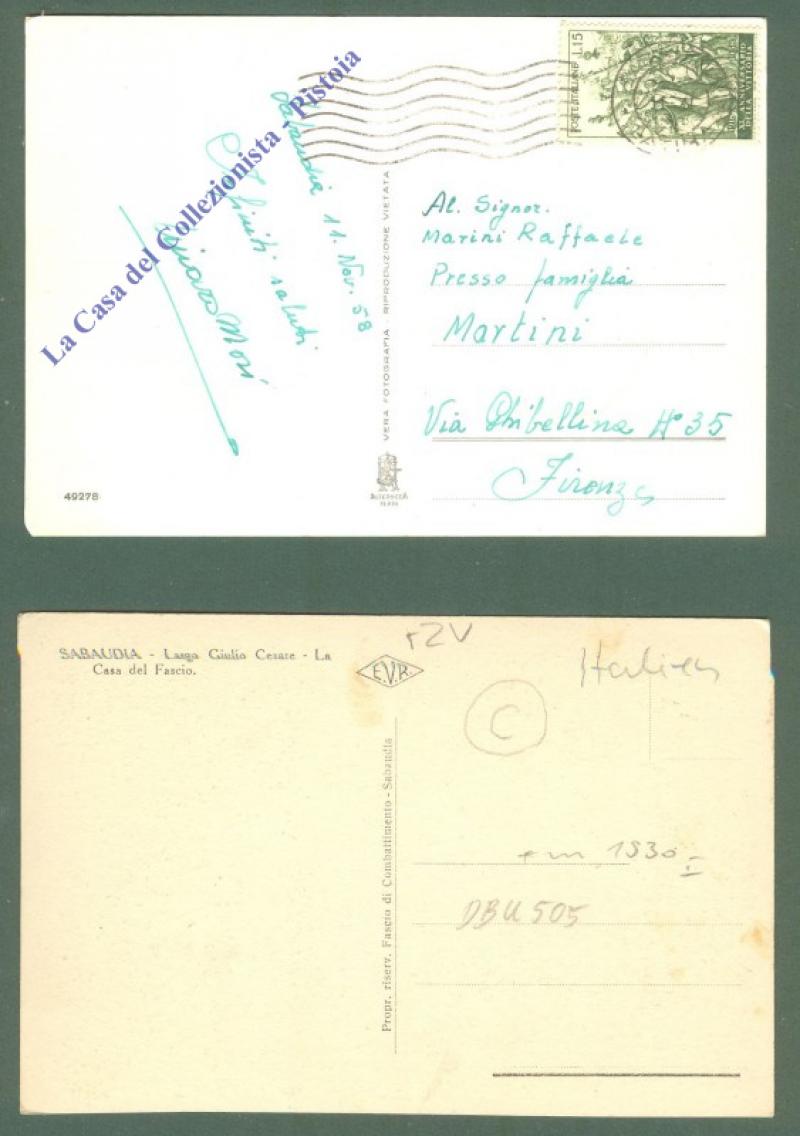 POSTE ITALIANE L.15
XL ANNIVERSARIO
DELLA VITTORIA
La Casa del Collezionista - Pistoia
Sabaudia 11. Nov. 58
Infiniti saluti
Mori
VERA FOTOGRAFIA - RIPRODUZIONE VIETATA
Al. Signor.
Marini Raffaele
Presso famiglia
Martini
Via Ghibellina N° 35
Firenze
49278
SABAUDIA - Largo Giulio Cesare - La
Casa del Fascio.
E.V.R.
rZV
Italien
C
Propr. riserv. Fascio di Combattimento - Sabaudia
um 1930
DBU 505